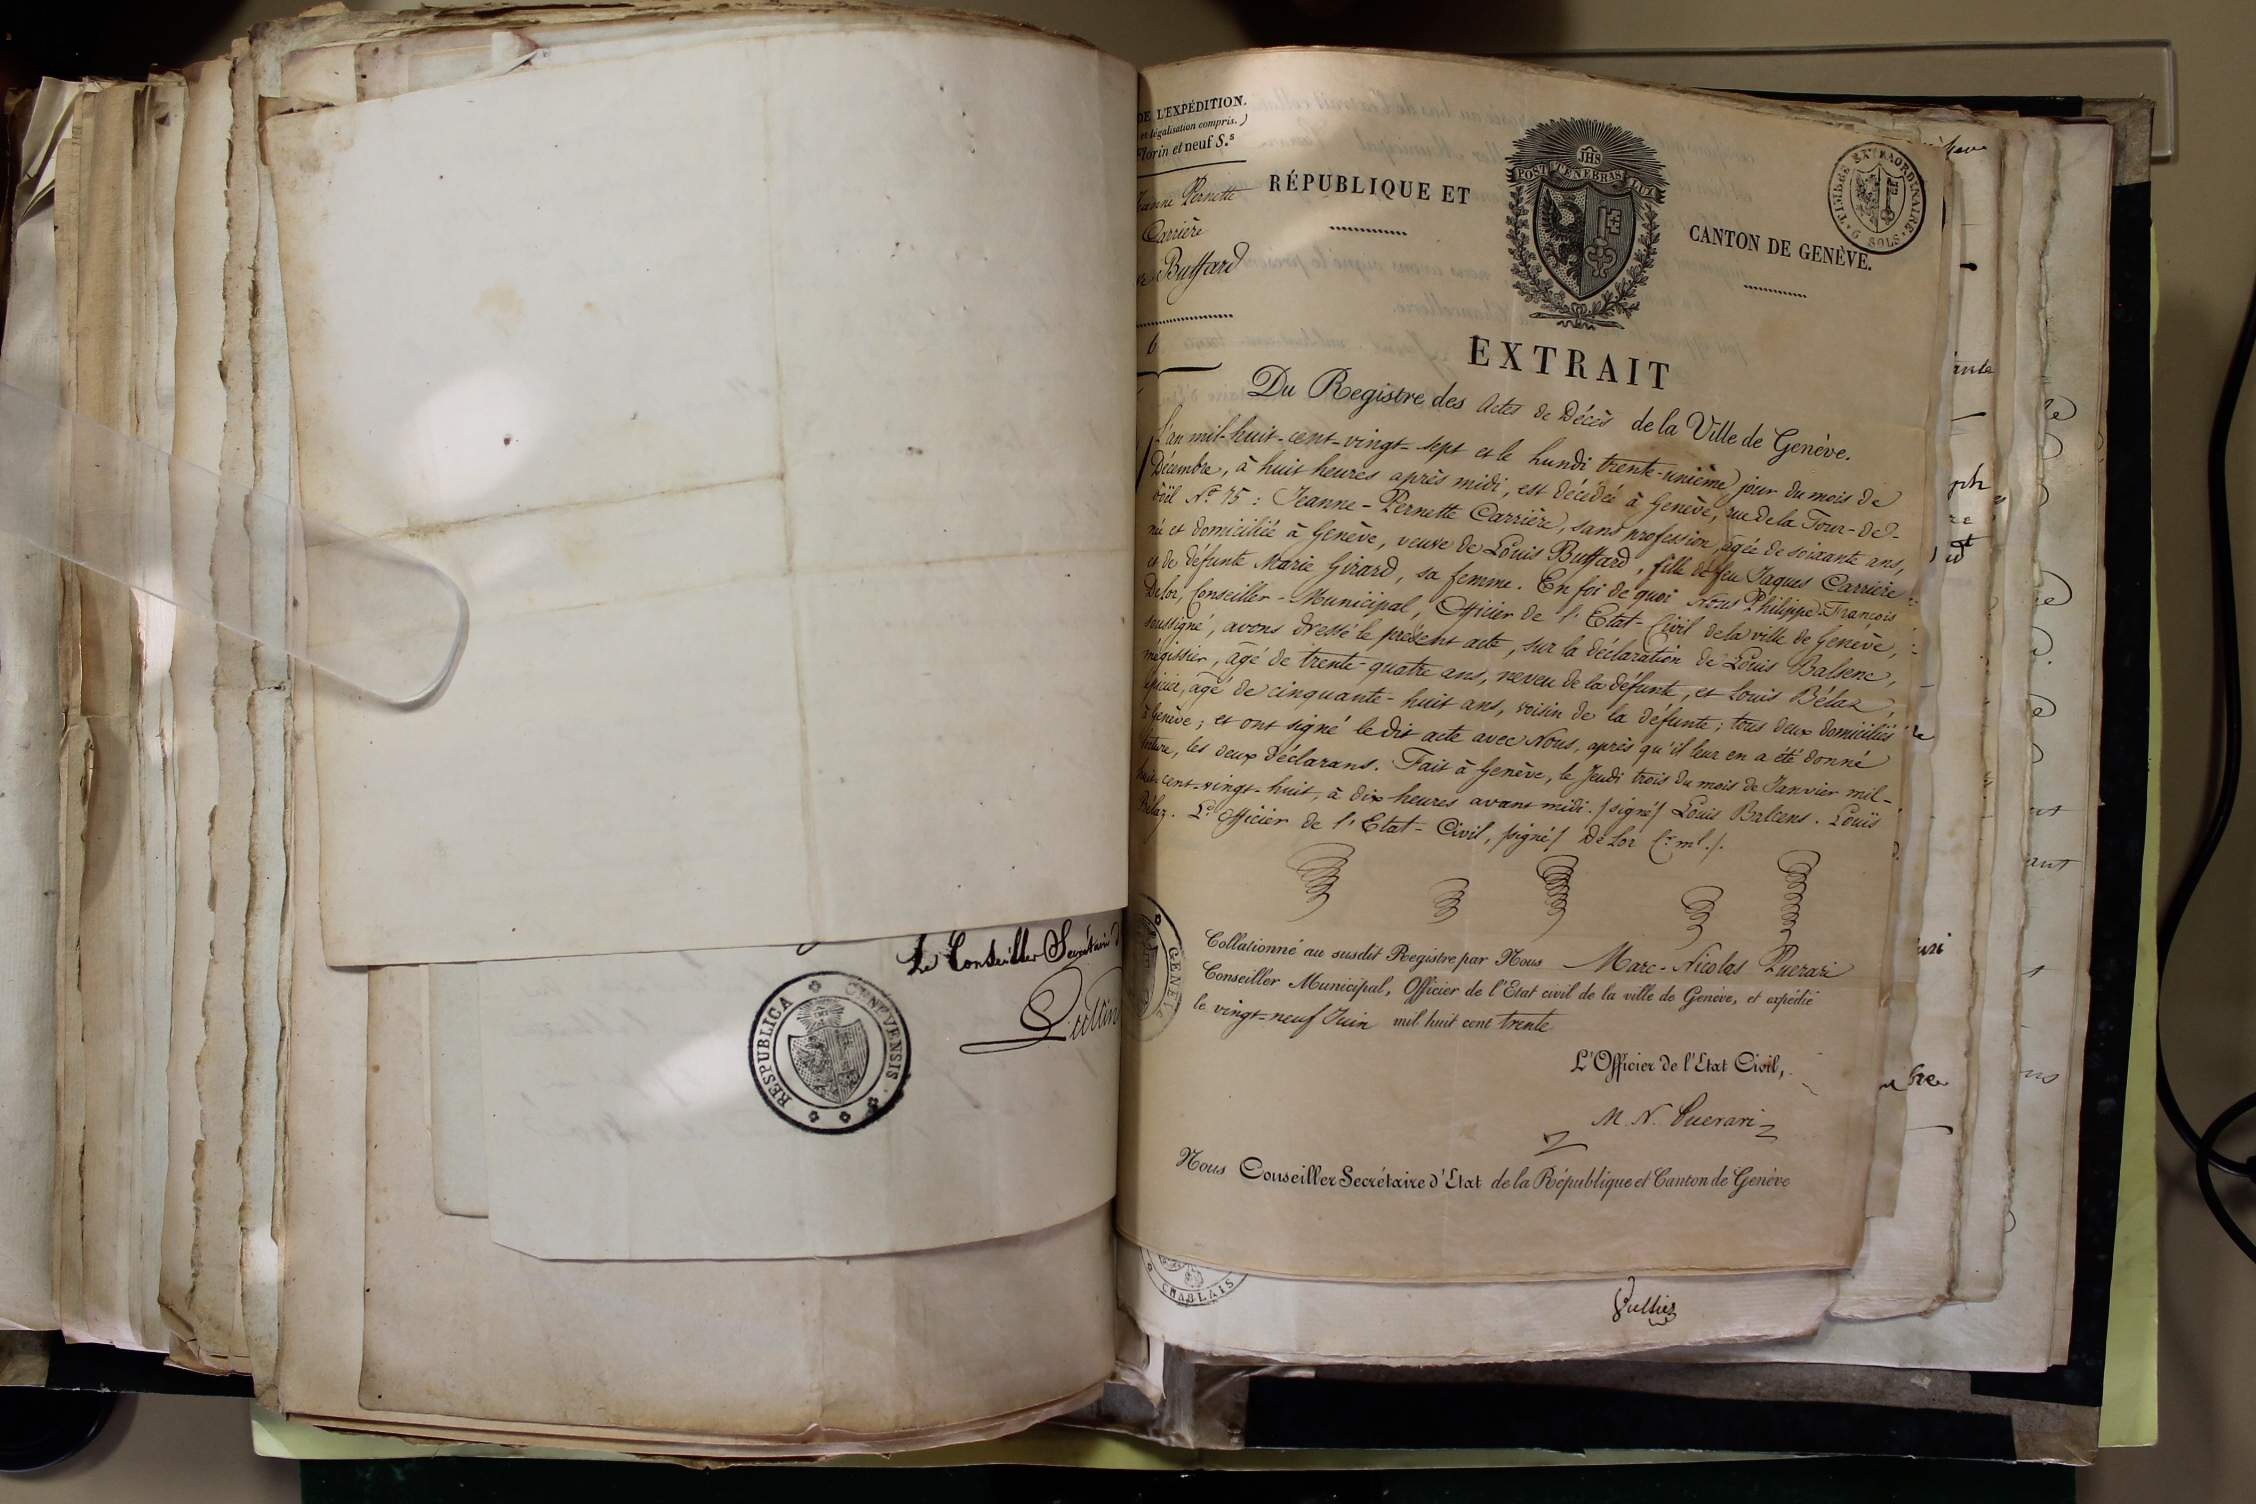 Le Conseiller Secrétaire d
RESPUBLICA GENEVENSIS
DE L'EXPÉDITION.
et légalisation compris.)
Florin et neuf S.s
Jeanne Pernette
Carrière
ve Buffard
6
RÉPUBLIQUE ET
JHS
POST TENEBRAS LUX
CANTON DE GENÈVE.
TIMBRE EXTRAORDINAIRE
6 SOLS
EXTRAIT
Du Registre des Actes de Décès de la Ville de Genève.
L'an mil-huit-cent-vingt-sept et le lundi trente-unième jour du mois de
Décembre, à huit heures après midi, est décédée à Genève, rue de la Tour-de-
Boël N.o 75 : Jeanne-Pernette Carrière, sans profession, âgée de soixante ans,
née et domiciliée à Genève, veuve de Louis Buffard, fille de feu Jaques Carrière
et de défunte Marie Girard, sa femme. En foi de quoi Nous Philippe-François
DeLor, Conseiller-Municipal, Officier de l'Etat-Civil de la ville de Genève,
soussigné, avons dressé le présent acte, sur la déclaration de Louis Balsenc,
mégissier, âgé de trente-quatre ans, neveu de la défunte, et Louis Bélaz,
épicier, âgé de cinquante-huit ans, voisin de la défunte; tous deux domiciliés
à Genève; et ont signé le dit acte avec Nous, après qu'il leur en a été donné
lecture, les deux déclarans. Fait à Genève, le Jeudi trois du mois de Janvier mil-
huit-cent-vingt-huit, à dix heures avant midi. /signé/ Louis Balcens. Louis
Bélaz. L'Officier de l'Etat-Civil, /signé/ DeLor C.r ml./.
GENÈV
Collationné au susdit Registre par Nous Marc-Nicolas Puerari
Conseiller Municipal, Officier de l'Etat civil de la ville de Genève, et expédié
le vingt-neuf Juin mil huit cent trente
L'Officier de l'Etat Civil,
M. N. Puerari
Nous Conseiller Secrétaire d'Etat de la République et Canton de Genève
CHABLAIS